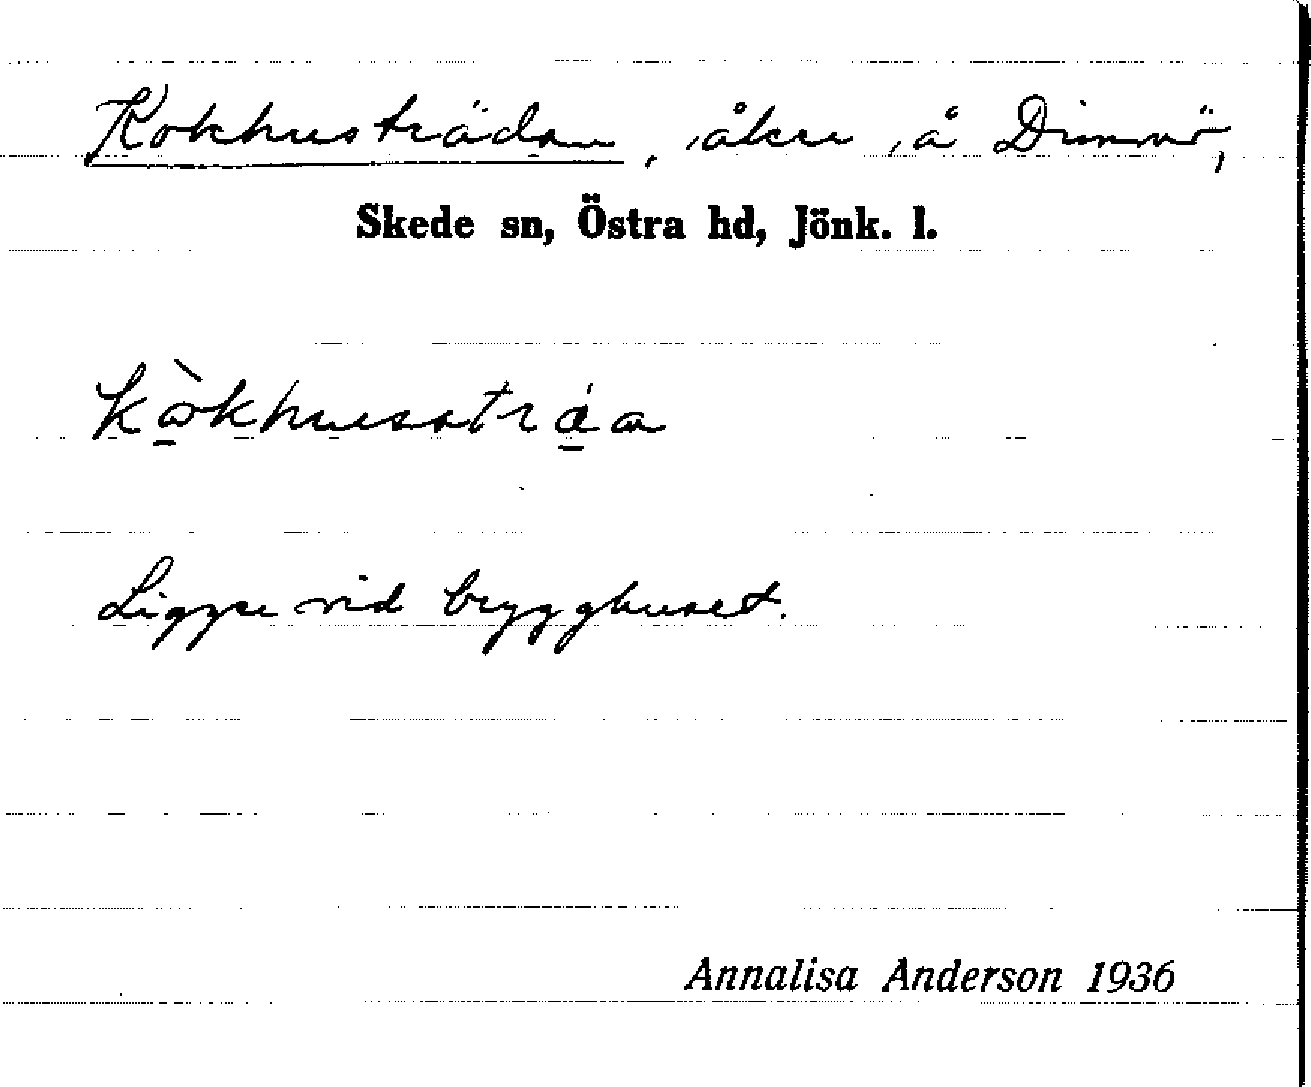 Kokhusträdan, åker å Dimnö,
Skede sn, Östra hd, Jönk. l.
kòkhusstráa
Ligger vid brygghuset.
Annalisa Anderson 1936